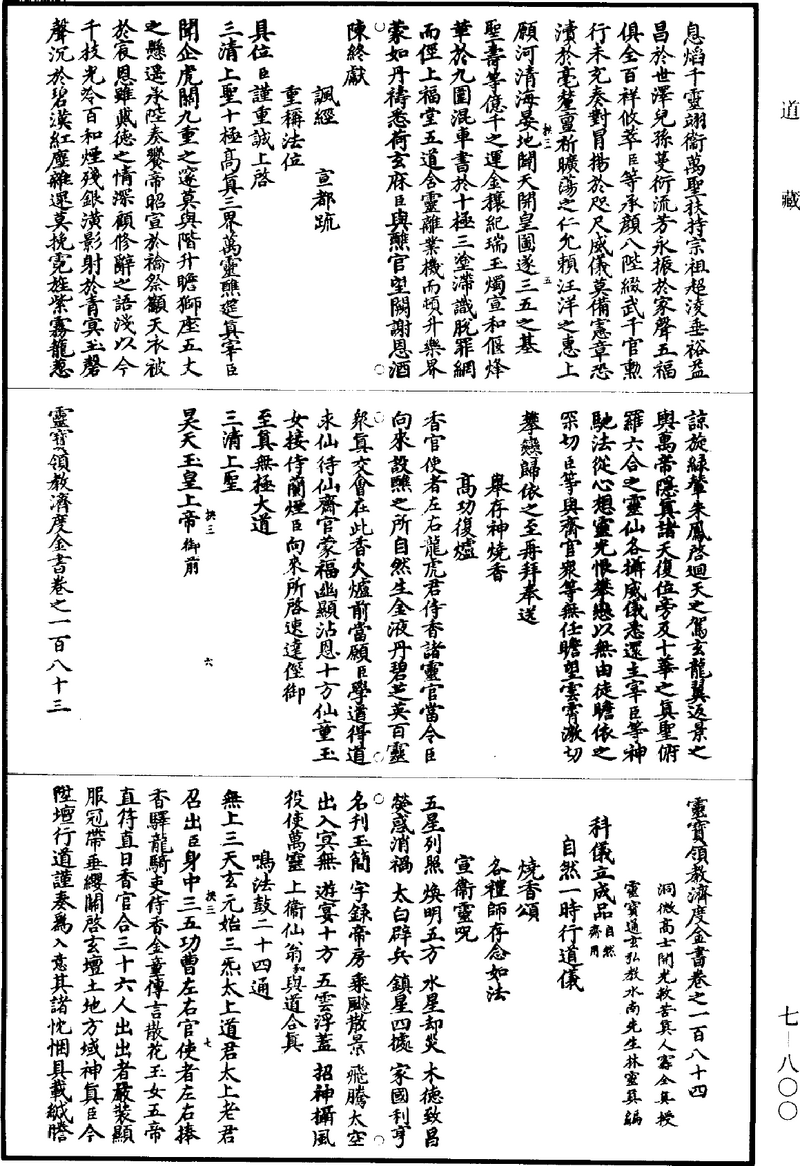 道藏
息焰千靈翊衞萬聖扶持宗祖超淩垂裕益
昌於世澤兒孫蔓衍流芳永振於家聲五福
俱全百祥攸萃臣等承顏八陛綴武千官勲
行未充奏對冒揚於咫尺威儀莫備憲章恐
瀆於毫釐亶祈曠蕩之仁允賴汪洋之惠上
願河清海晏地闢天開皇圖遂三五之基
聖壽等億千之運金穰紀瑞玉燭宣和偃烽
華於九圍混車書於十極三塗滯識脫罪網
而俓上福堂五道含靈離業機而頓升樂界
蒙如丹禱悉荷玄庥臣與醮官望闕謝恩酒
陳終獻
諷經 宣都疏
重稱法位
具位臣謹重誠上啓
三清上聖十極髙真三界萬靈醮筵真宰臣
聞企虎關九重之邃莫與階升瞻獅座五丈
之懸遥承陛奏饗帝昭宣於禴祭籲天衣被
於㝮恩雖戴德之情深顧修辭之語淺以今
千枝光冷百和煙殘銀潢影射於青冥玉磬
聲沉於碧漢紅塵難逞莫挽霓旌紫霧龍葱
諒旋緑輦朱鳳啓迴天之駕玄龍翼返景之
輿萬帝隱真諸天復位旁及十華之真聖俯
羅六合之靈仙各攝威儀悉還主宰臣等神
馳法從心想靈光悵攀戀以無由徒瞻依之
罙切臣等與齋官衆等無任瞻望雲霄激切
攀戀歸依之至再拜奉送
舉存神燒香
髙功復爐
香官使者左右龍虎君侍香諸靈官當令臣
向來設醮之所自然生金液丹碧芝英百靈
衆真交會在此香火爐前當願臣學道得道
求仙得仙齋官蒙福幽顯沾恩十方仙童玉
女接侍蘭煙臣向來所啓速達俓御
至真無極大道
三清上聖
昊天玉皇上帝御前
靈寳領教濟度金書卷之一百八十三
靈寳領教濟度金書卷之一百八十四
洞微髙士開光救苦真人寗全真授
靈寳通玄弘教水南先生林靈真編
科儀立成品自然齋用
自然一時行道儀
燒香頌
各禮師存念如法
宣衞靈呪
五星列照 煥明五方 水星却災 木德致昌
熒惑消禍 太白辟兵 鎮星四據 家國利亨
名刋玉簡 字錄帝房 乘飈散景 飛騰太空
出入冥無 遊宴十方 五雲浮蓋 招神攝風
役使萬靈 上衞仙翁 與道合真
鳴法鼓二十四通
無上三天玄元始三炁太上道君太上老君
召出臣身中三五功曹左右官使者左右捧
香驛龍騎吏侍香金童傳言散花玉女五帝
直符直日香官合三十六人出出者嚴裝顯
服冠帶垂纓關啓玄壇土地方域神真臣今
陞壇行道謹奏爲入意其諸忱悃具載緘謄
七－八〇〇